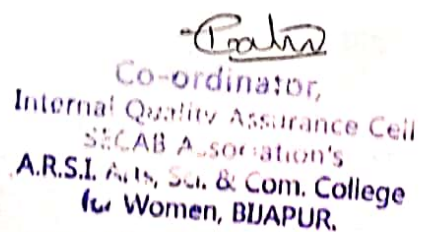 Co-ordinator,
Internal Quality Assurance Cell
SECAB Association's
A.R.S.I. Arts, Sci. & Com. College
for Women, BIJAPUR.